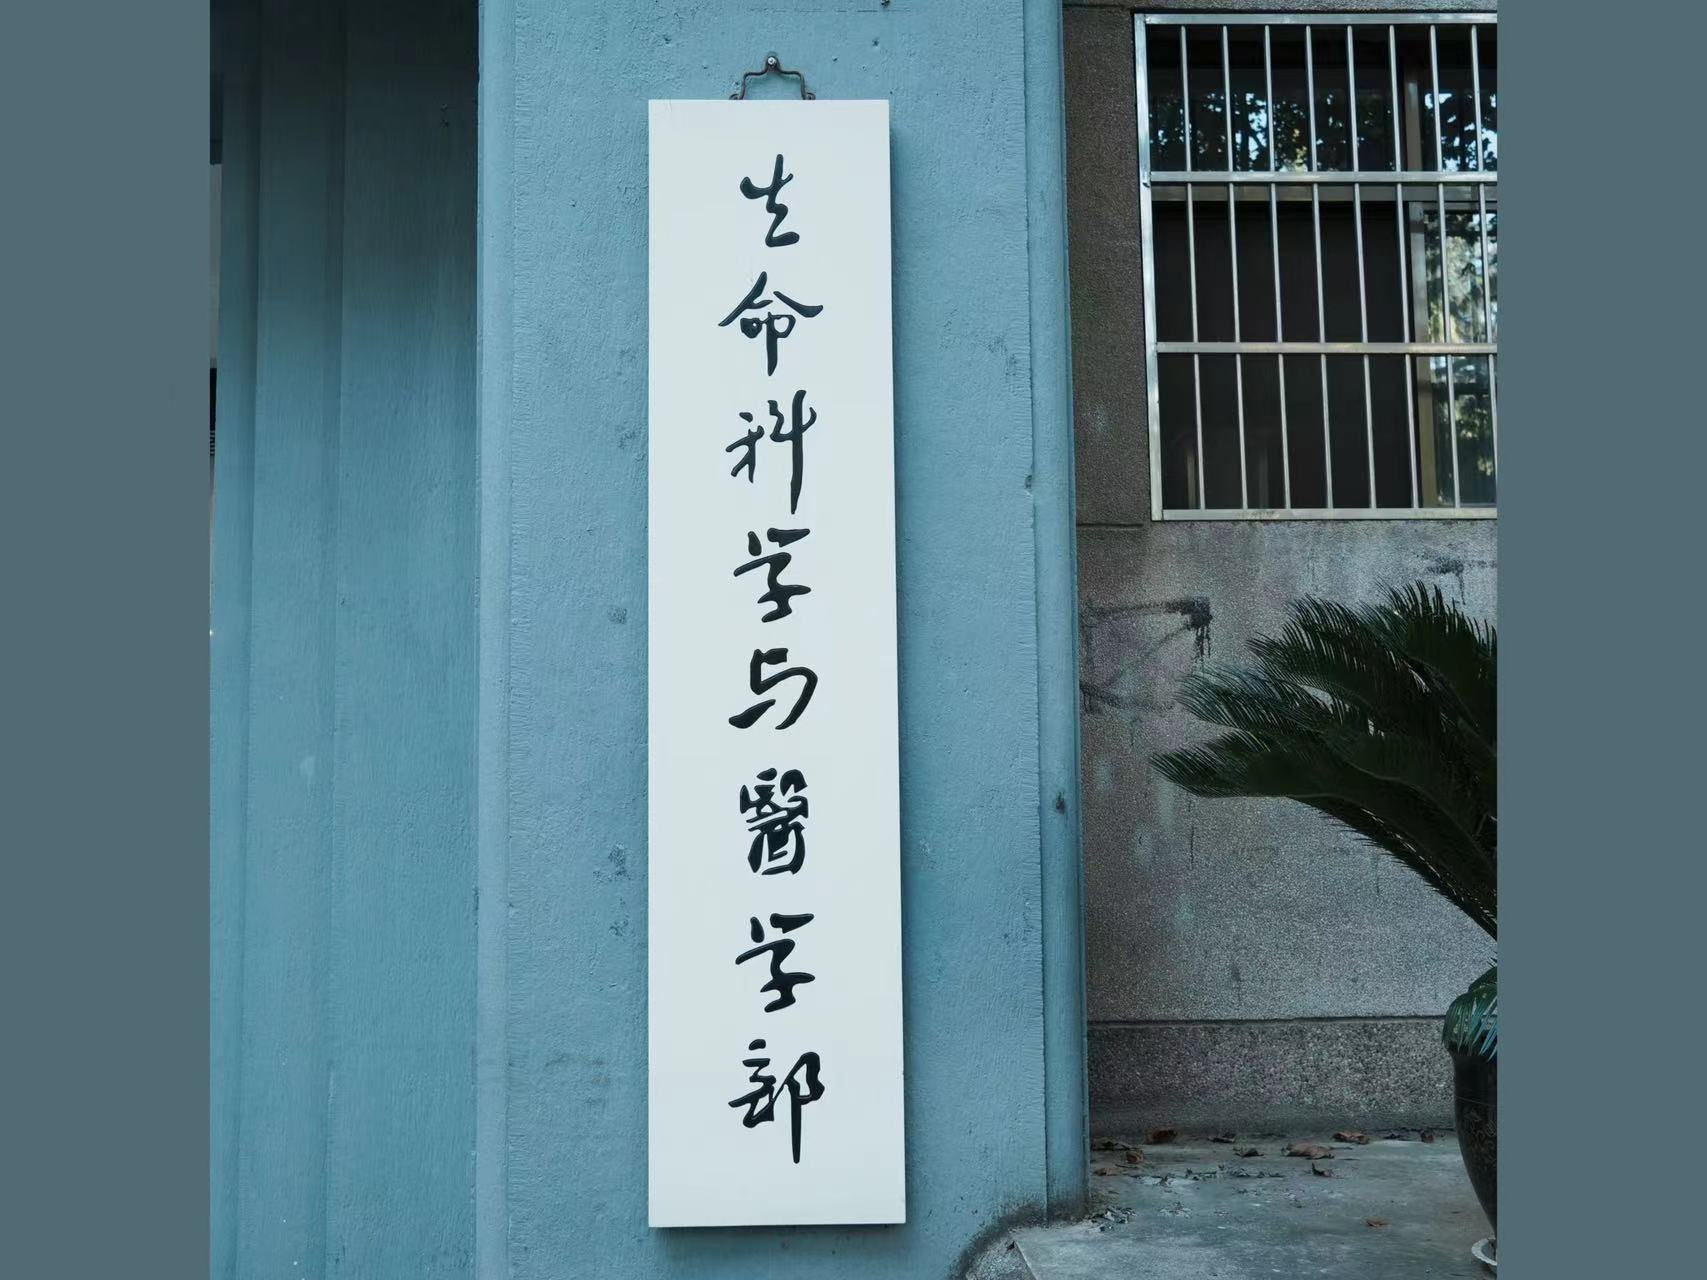 生命科学与醫学部